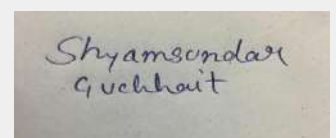 Shyamsundar
Guchhait